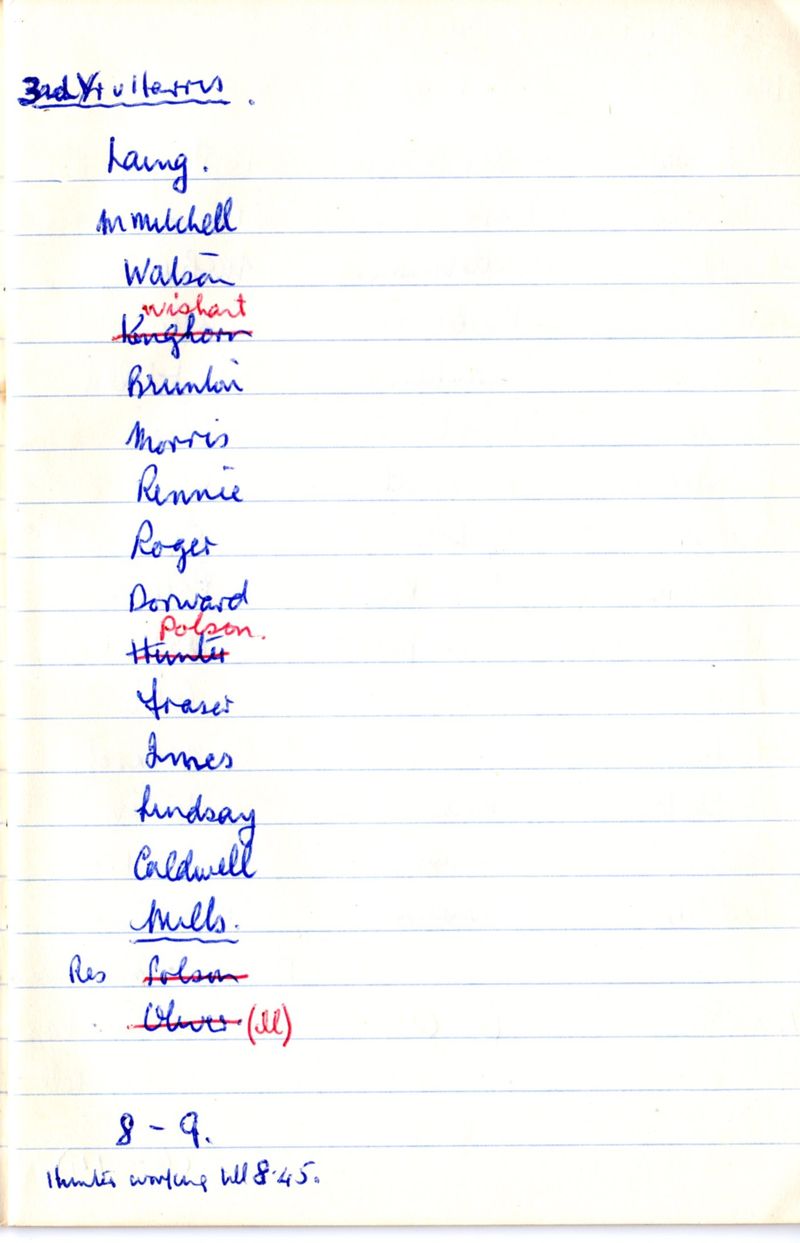 Laing.
M Mitchell
Watson
Wishart
Kinghorn
Brunton
Morris
Rennie
Roger
Dorward
Polson.
Hunter
Fraser
Innes
Lindsay
Caldwell
Mills.
Res Polson
Oliver (ill)
8 - 9.
Hunter working till 8.45.